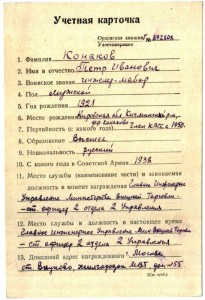 Учетная карточка
Орденская книжка №
Удостоверение
1. Фамилия Конаков
2. Имя и отчество Петр Иванович
3. Воинское звание инженер-майор
4. Пол Мужской
5. Год рождения 1921
6. Место рождения Кировская обл.
7. Партийность (с какого года) член КПСС с 1950.
8. Образование Высшее
9. Национальность русский
10. С какого года в Советской Армии 1938
11. Место службы (наименование части) и занимаемая
должность в момент награждения Главное Инженерное
Управление Министерства Внешней Торговли -
- ст. офицер 2 отдела 2 Управления
12. Место службы и должность в настоящее время
Главное инженерное Управление
ст. офицер 2 отдела 2 Управления
13. Домашний адрес награжденного г. Москва
ст. Внуково, дом 55